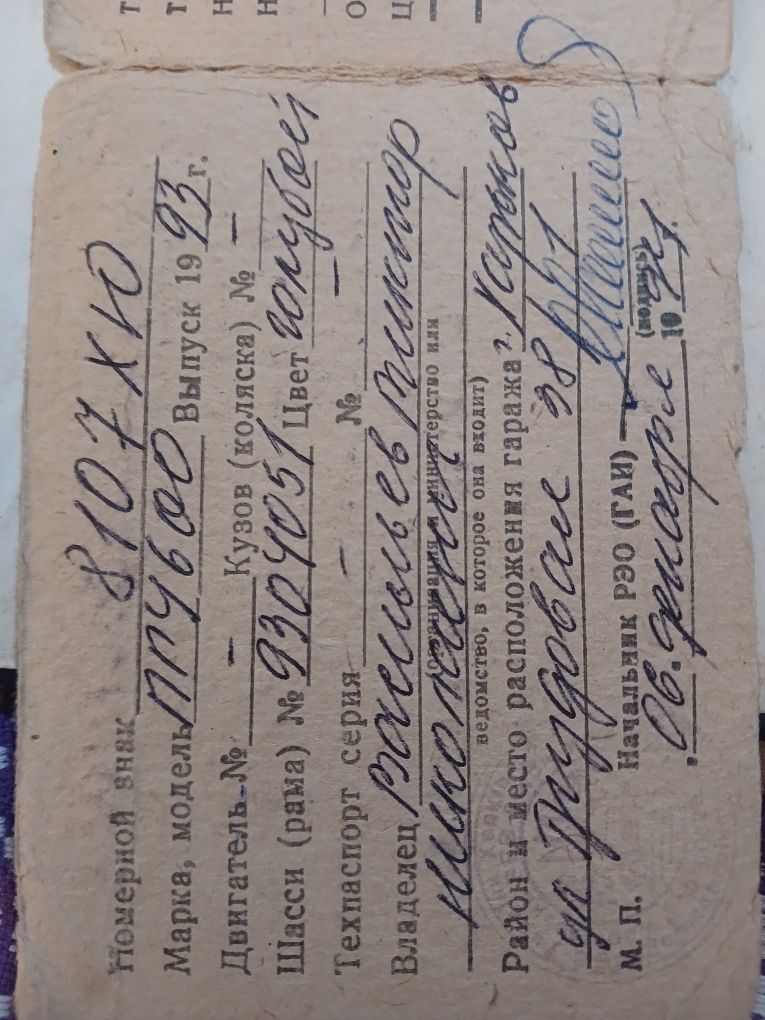 Номерной знак 8107 ХЮ
Марка, модель ПГУ600 Выпуск 1993 г.
Двигатель № – Кузов (коляска) № –
Шасси (рама) № 9304051 Цвет голубой
Техпаспорт серия – № –
Владелец Васильев Виктор
(организация министерство или
Николаевич
ведомство, в которое она входит)
Район и место расположения гаража г. Харьков
ул Трудовая 38
Начальник РЭО (ГАИ)
М. П.
(подпись)
06. декабря 19 г.